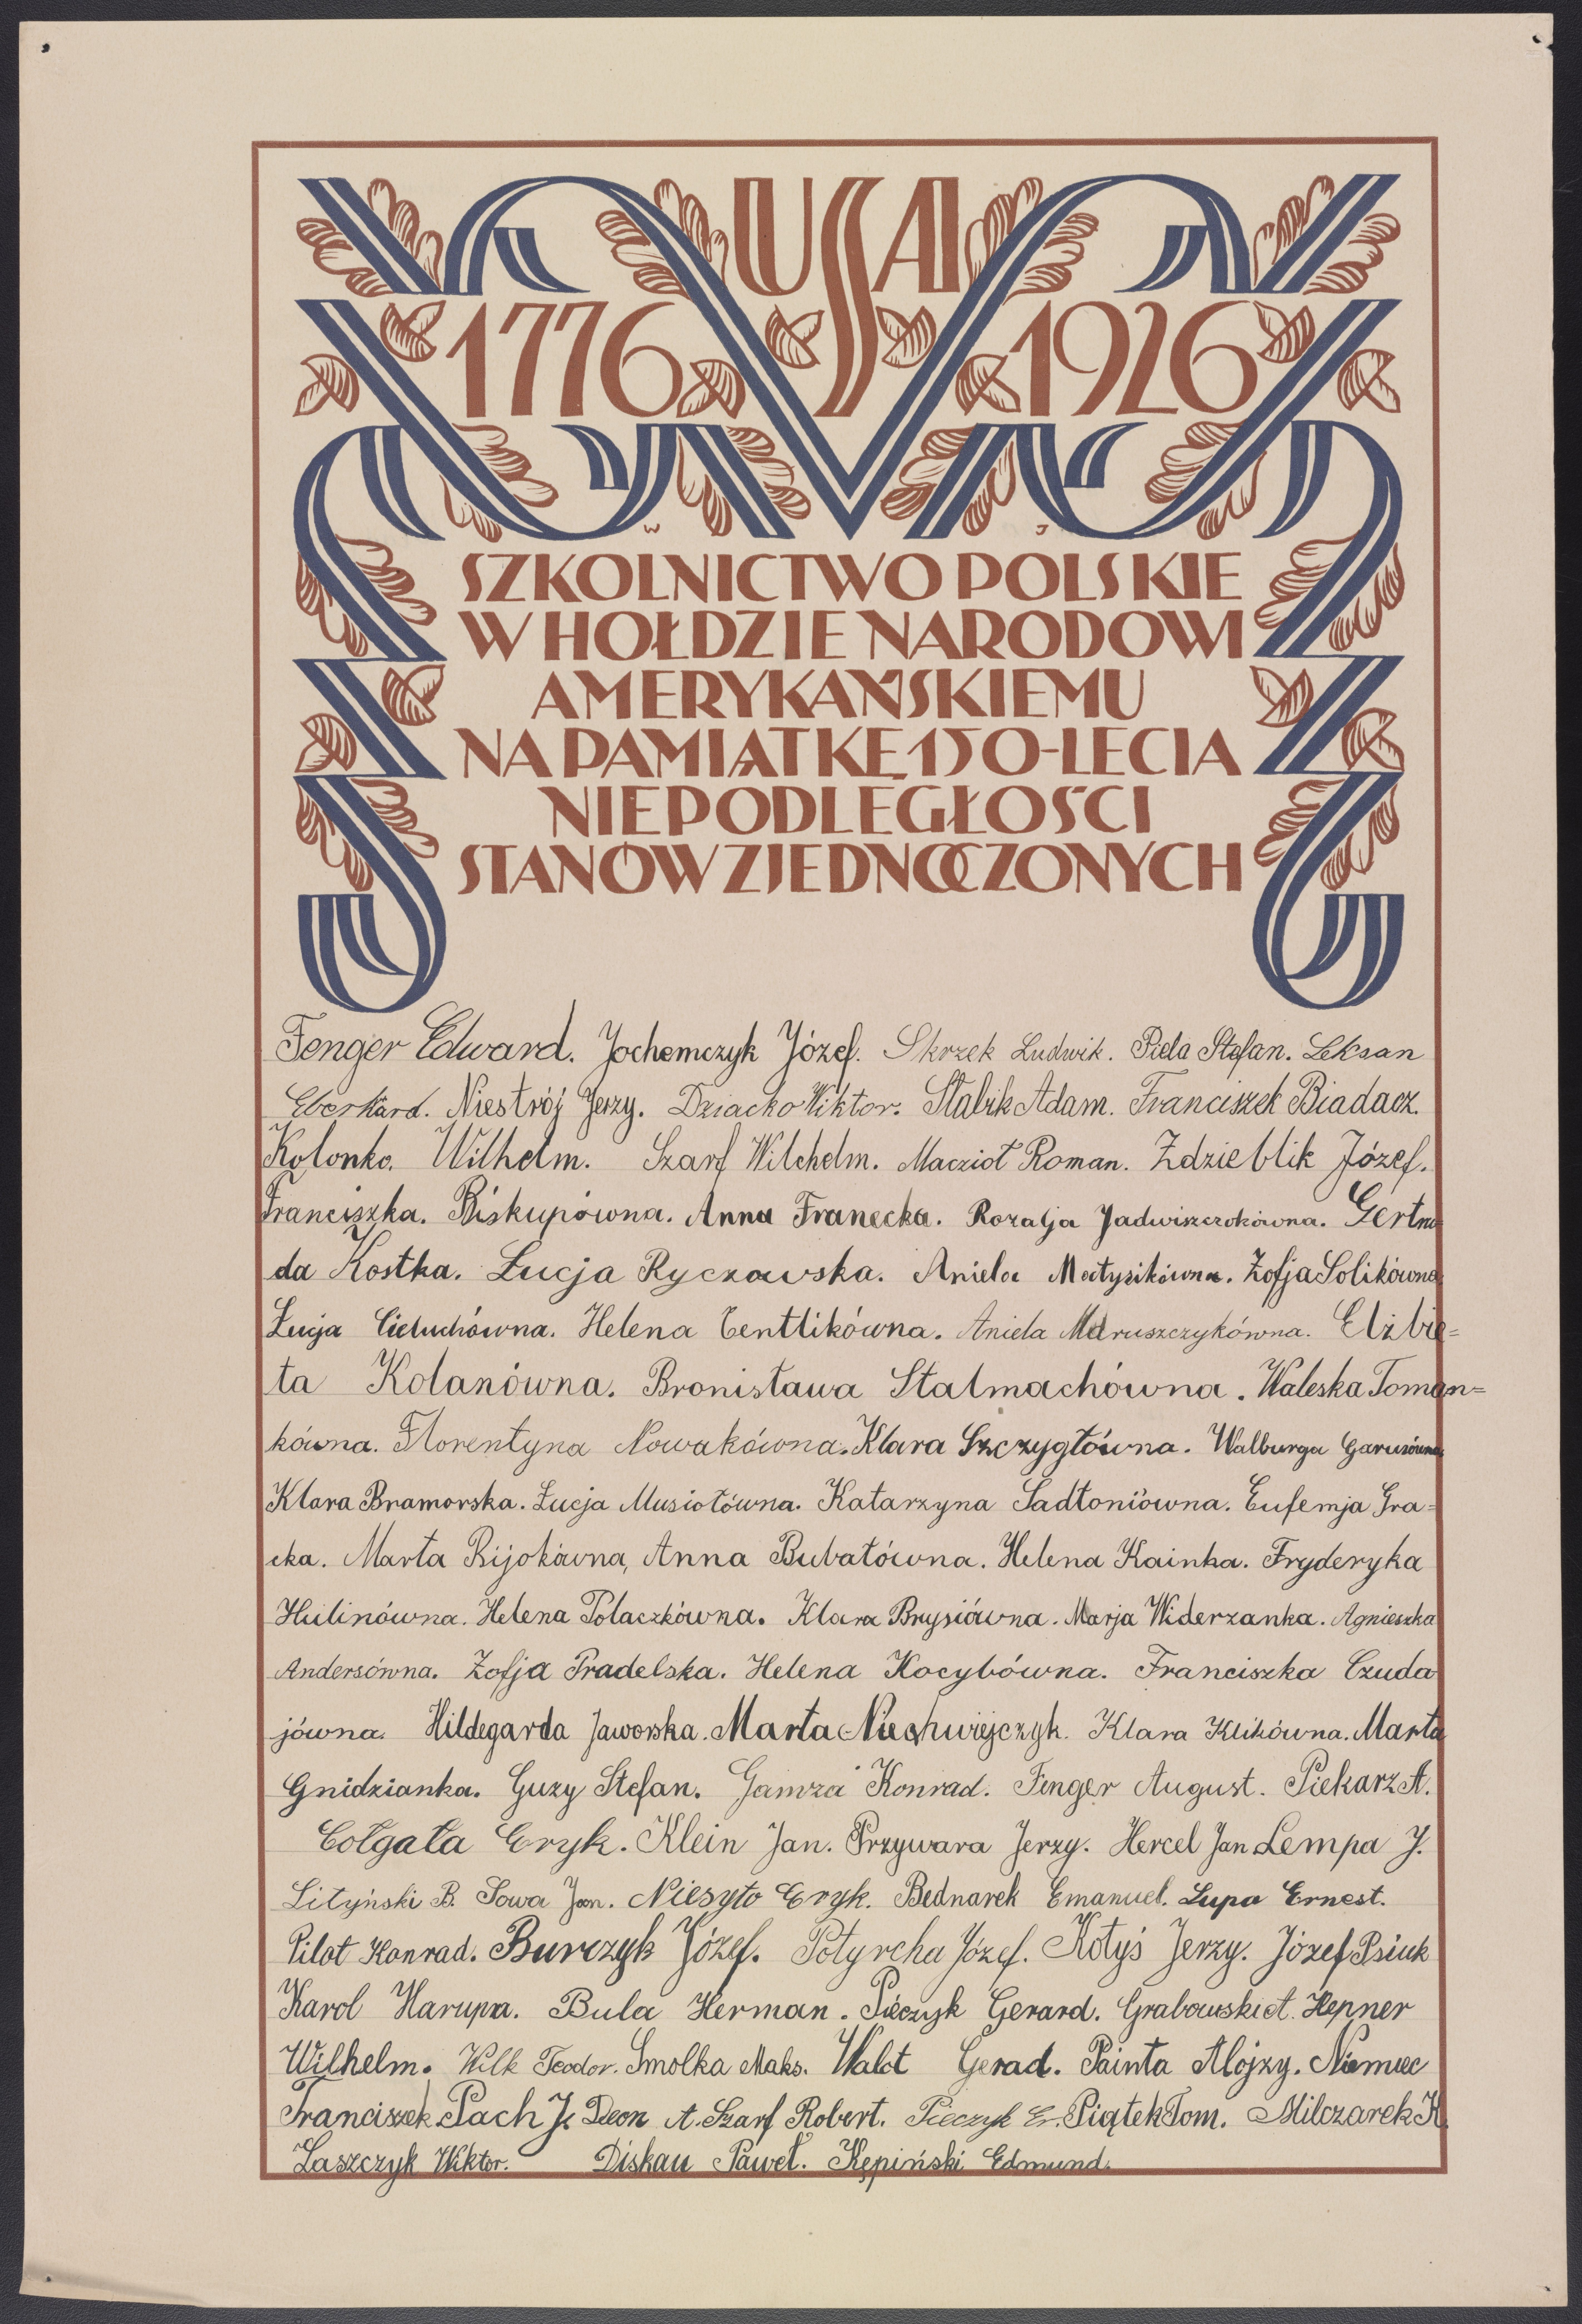 USA
1776 1926
W J
SZKOLNICTWO POLSKIE
W HOŁDZIE NARODOWI
AMERYKAŃSKIEMU
NA PAMIĄTKĘ 150-LECIA
NIEPODLEGŁOŚCI
STANÓW ZJEDNOCZONYCH
Fenger Edward. Jochemczyk Józef. Skrzek Ludwik. Piela Stefan. Leksan
Eberhard. Niestrój Jerzy. Dziacko Wiktor. Stalik Adam. Franciszek Biadacz.
Kolonko. Wilhelm. Szarf Wilchelm. Maczioł Roman. Zdzieblik Józef.
Franciszka. Biskupówna. Anna Franecka. Rozalja Jadwiszczokówna. Gertru
da Kostka. Łucja Ryczowska. Aniela Matysikówna. Zofja Solikówna
Łucja Cieluchówna. Helena Centlikówna. Aniela Maruszczykówna. Elżbie=
ta Kolanówna. Bronisława Stalmachówna. Waleska Toman=
kówna. Florentyna Nowakówna. Klara Szczygłówna. Walburga Garusówna
Klara Bramorska. Łucja Musiołówna. Katarzyna Sadłoniówna. Eufemja Gra=
cka. Marta Bijokówna, Anna Bubałówna. Helena Kainka. Fryderyka
Hulinówna. Helena Polaczkówna. Klara Brysiówna. Marja Widerzanka. Agnieszka
Andersówna. Zofja Pradelska. Helena Kocybówna. Franciszka Czuda
jówna. Hildegarda Jaworska. Marta Niechwiejczyk. Klara Klikówna. Marta
Gnidzianka. Guzy Stefan. Gamza Konrad. Fenger August. Piekarz A.
Cołgała Eryk. Klein Jan. Przywara Jerzy. Hercel Jan Lempa J.
Lityński B. Sowa Jan. Niesyto Eryk. Bednarek Emanuel. Lupa Ernest.
Pilot Konrad. Burczyk Józef. Potyrcha Józef. Kotyś Jerzy. Józef Psiuk
Karol Harupa. Bula Herman. Pieczyk Gerard. Grabowski A. Hepner
Wilhelm. Wilk Teodor. Smolka Maks. Walot Gerad. Painta Alojzy. Niemiec
Franciszek Pach J. Deon A. Szarf Robert. Pieczyk Er. Piątek Tom. Milczarek K.
Laszczyk Wiktor. Diskau Paweł. Kępiński Edmund.